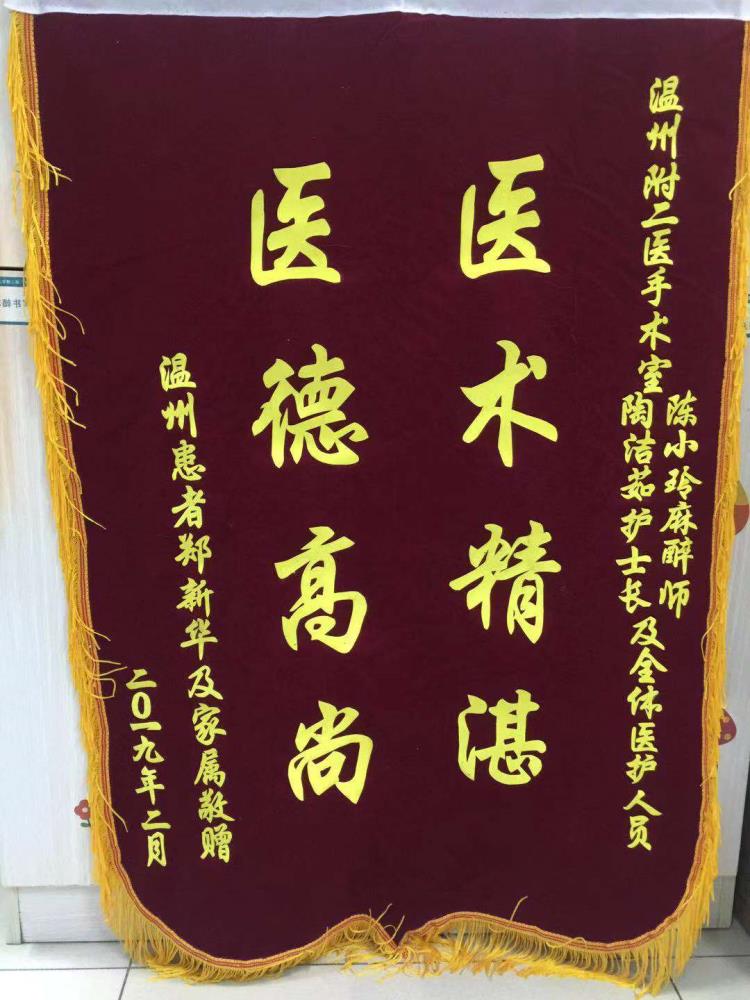 温州附二医手术室
陈小玲麻醉师
陶洁茹护士长及全体医护人员
医术精湛
医德高尚
温州患者郑新华及家属敬赠
二〇一九年二月